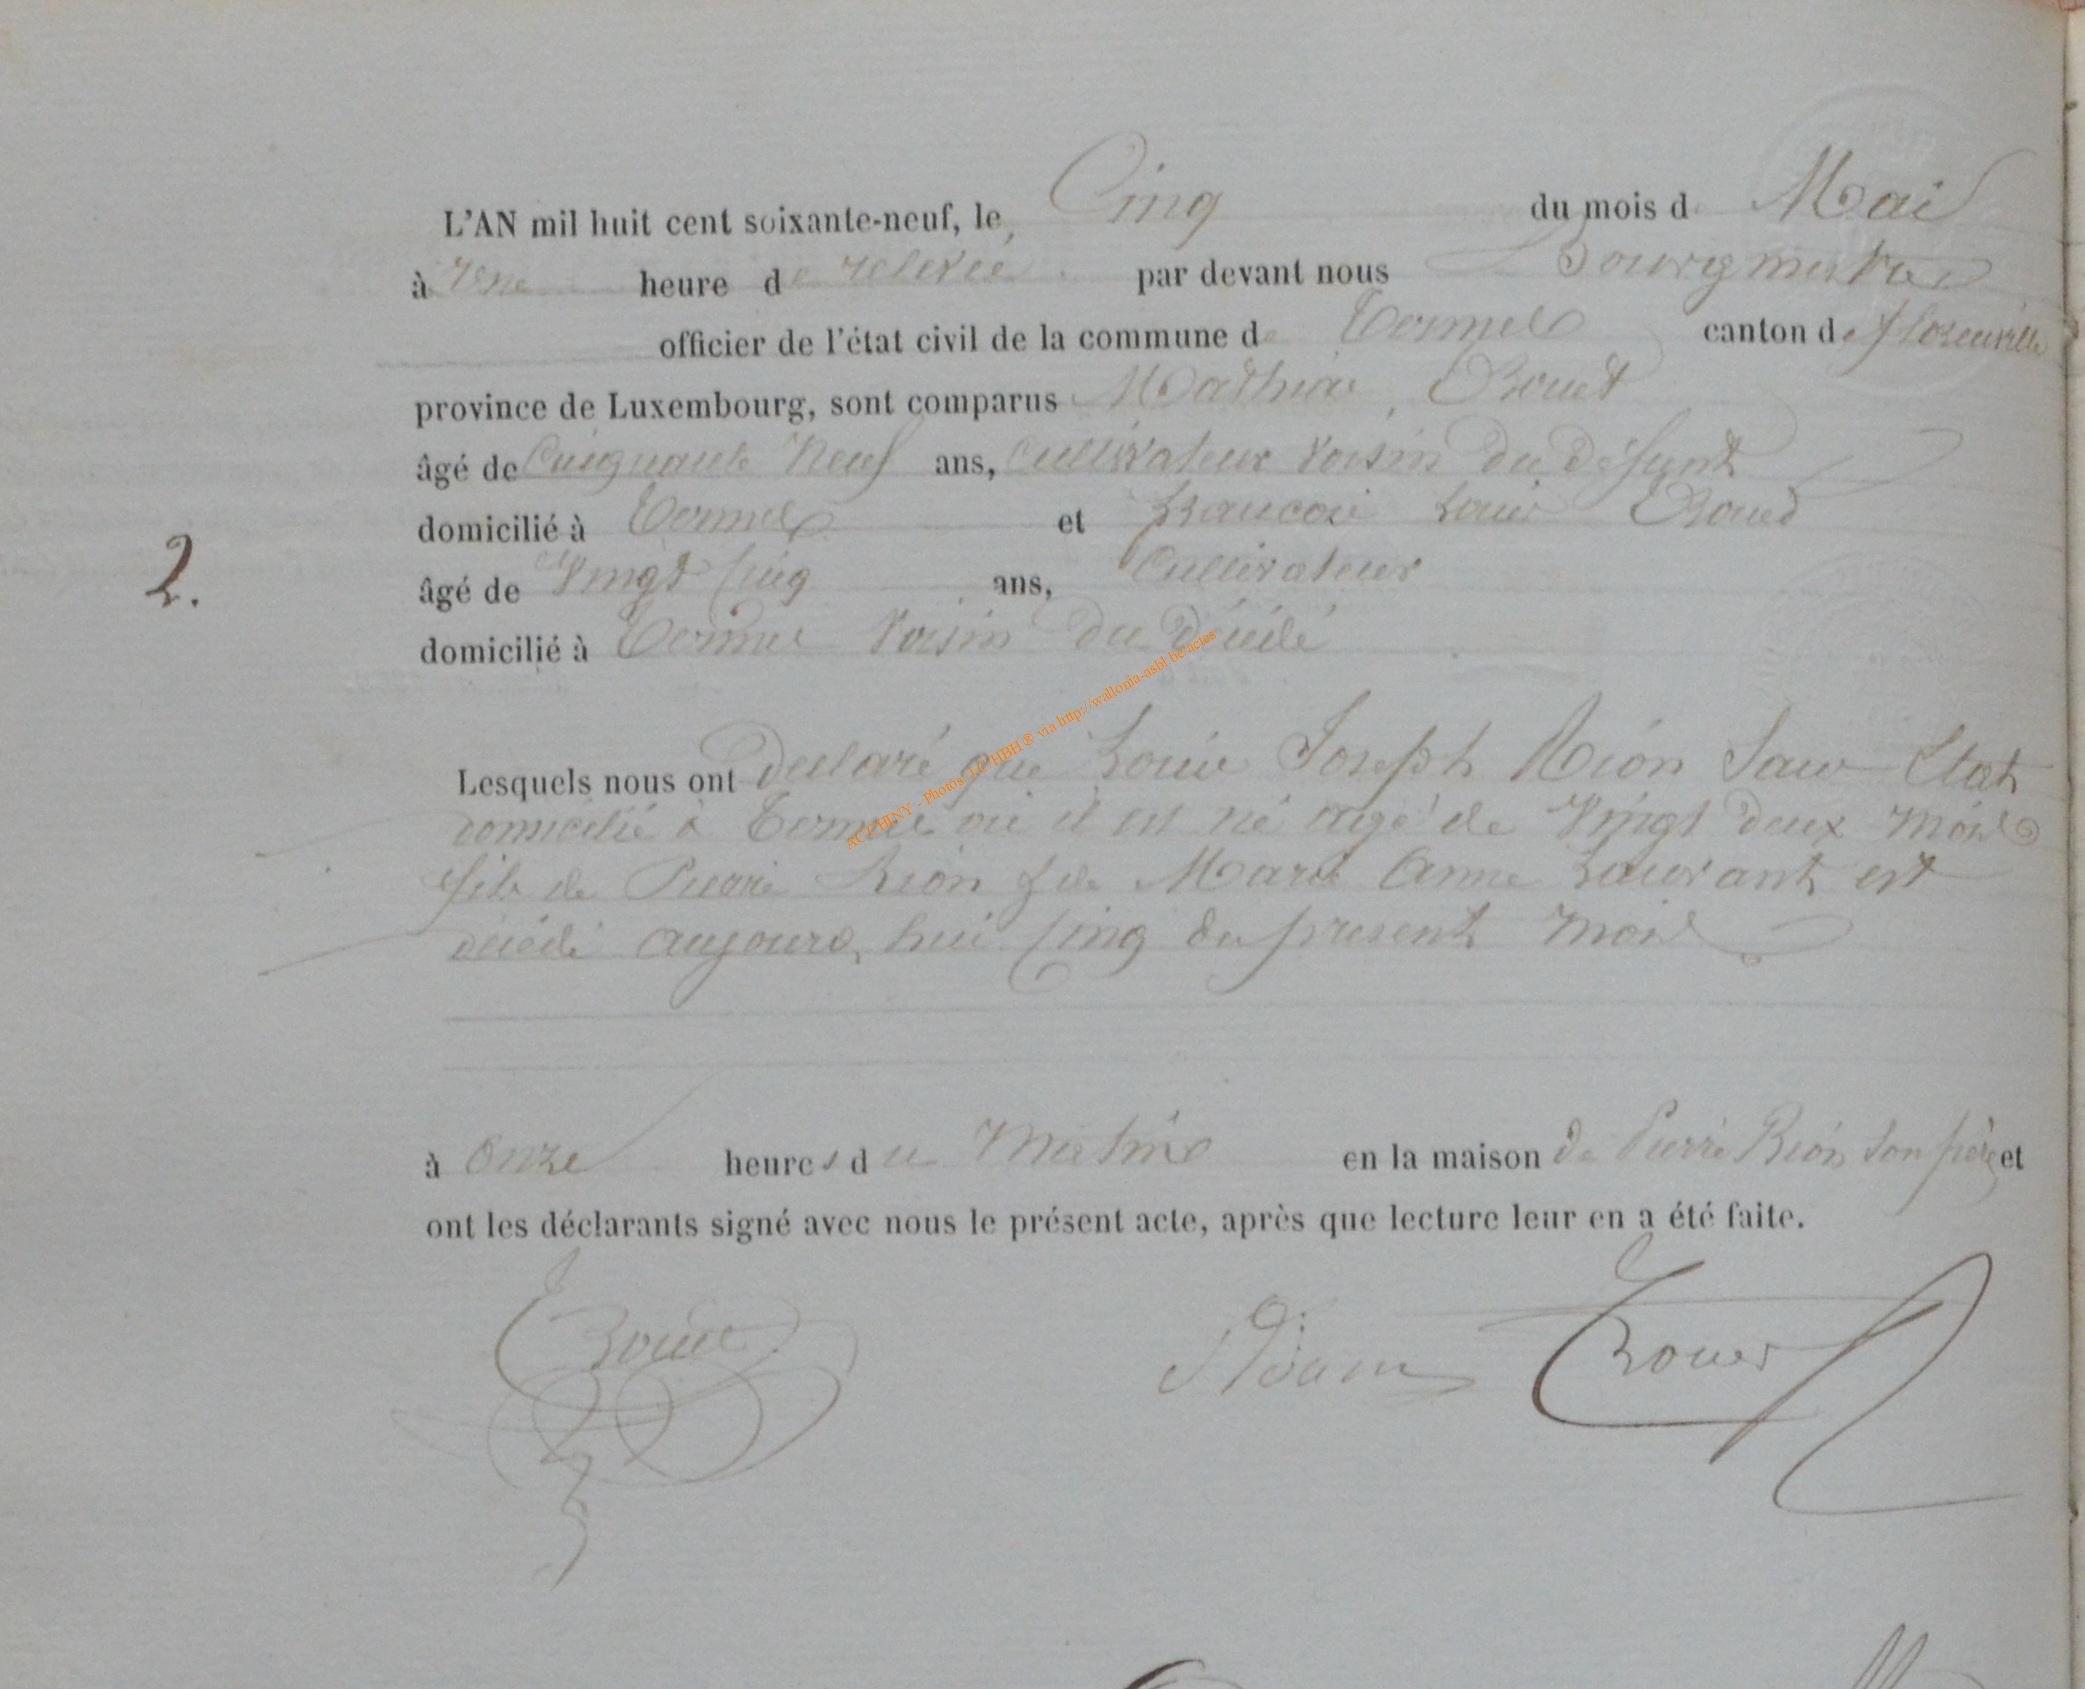 L'AN mil huit cent soixante-neuf, le Cinq du mois d Mai
à Une heure de relevée par devant nous Bourgmestre
officier de l'état civil de la commune de Termes canton de florenville
province de Luxembourg, sont comparus Mathieu Rouet
âgé de Cinquante Neuf ans, Cultivateur Voisin du Défunt
domicilié à Termes et francois Louis Roued
2.
âgé de Vingt Cinq ans, Cultivateur
domicilié à Termes Voisin du Décédé
Lesquels nous ont Declaré que Louis Joseph Rion Sans Etat
domicilié à Termes où il est né agé de Vingt deux mois
fils de Pierre Rion & de Marie Anne Laurant est
décédé aujourd,hui Cinq du present mois
à Onze heures du Matin en la maison de Pierre Rion Son père et
ont les déclarants signé avec nous le présent acte, après que lecture leur en a été faite.
Rouet Adam Rouer
ACCHINY - Photos LC HBH ® via http://wallonia-asbl.be/actes